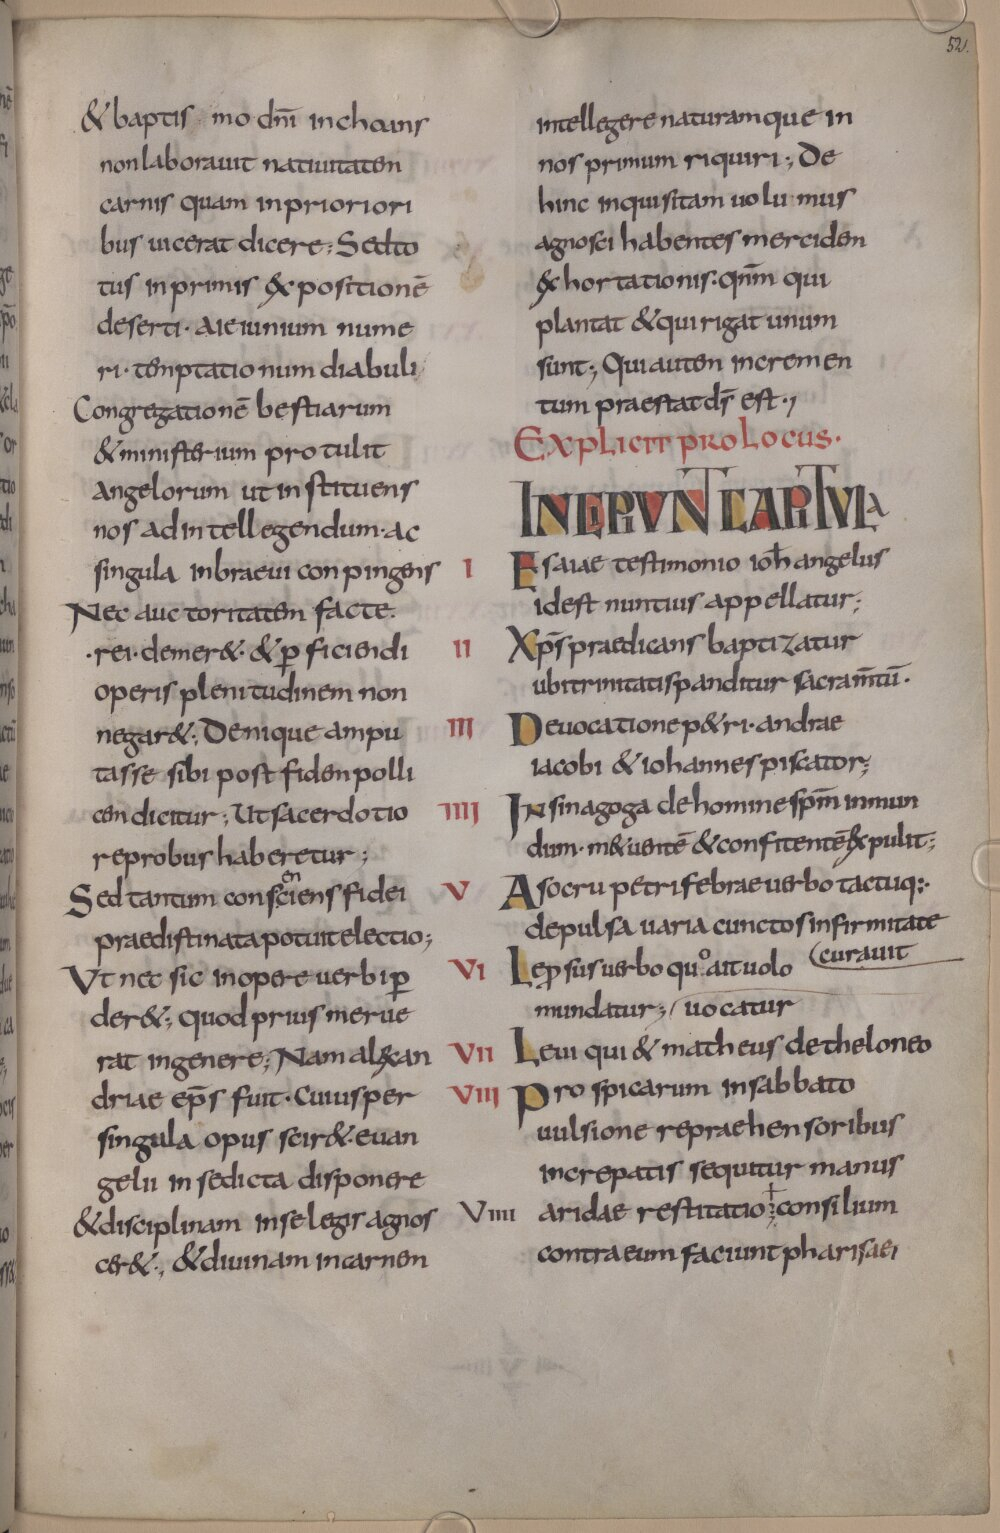 52.
& baptis mo dn̄i inchoans
nonlaborauit natiuitatem
carnis quam inprioriori
bus uicerat dicere; Sedto
tus inprimis expositionē
deserti· aieiunium nume
ri· temptatio num diabuli
Congregationē bestiarum
& ministerium protulit
angelorum ut instituens
nos adintellegendum· ac
singula inbraeui conpingens
Nec auctoritatem facte
·rei·demer&· & p̱ficiendi
operis plenitudinem non
negar&; Denique ampu
tasse sibi post fidem polli
cem dicitur; Ut sacerdotio
reprobus haberetur;
Sed tantum consciens fidei
en
praedistinata potuit electio;
Ut nec sic inopere uerbi p̱
der&; quod prius merue
rat ingenere; Nam alexan
driae ep̄s fuit· Cuius per
singula opus scir& euan
gelii insedicta disponere
& disciplinam inse legis agnos
cer&·, & diuinam incarnem
intellegere naturamque in
nos primum riquiri·; De
hinc inquisitam uolu mus
agnosci habentes merciden
exhortationis· qn̄m qui
plantat & qui rigat unum
sunt·; Qui autem incremen
tum praestat dr̄ est·,
Explicit prolocus·
INCIPIVNT CAPITVLa
I Esaiae testimonio ioh̄ angelus
idest nuntius appellatur;
II Xp̄s praedicans baptizatur
ubi trinitatis panditur sacram̄tū·
III Deuocatione p&ri· andrae
iacobi & iohannes piscator;
IIII In sinagoga de homine sp̄m inmun
dum· m& uentē & confitentē expulit;
V A socru petri febrae uerbo tactuq:·
depulsa uaria cunctos infirmitate
curauit
VI Lep̱sus uerbo quo ait uolo
mundatur; uocatur
VII Leui qui & matheus de theloneo
VIII Pro spicarum insabbato
uulsione repraehensoribus
increpatis sequitur manus
VIIII aridae restitatio; consilium
contra eum faciunt pharisaei